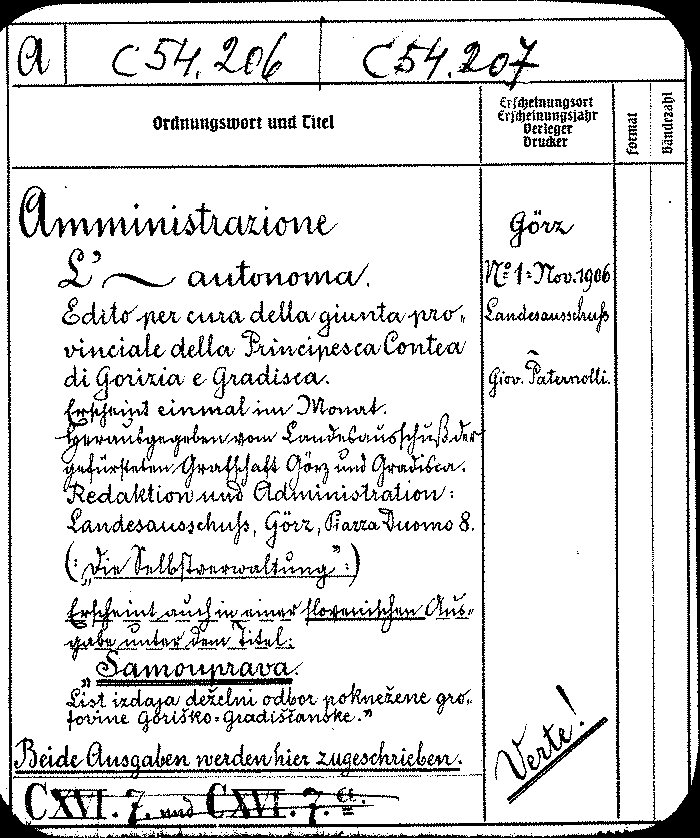 A C 54.206 C 54.207
Ordnungswort und Titel
Erscheinungsort
Erscheinungsjahr
Verleger
Drucker
Format
Bändezahl
Amministrazione
L' ~ autonoma.
Edito per cura della giunta pro-
vinciale della Principesca Contea
di Gorizia e Gradisca.
Erscheint einmal im Monat.
Herausgegeben vom Landesausschuß der
gefürsteten Grafschaft Görz und Gradisca.
Redaktion und Administration:
Landesausschuß, Görz, Piazza Duomo 8.
(:„Die Selbstverwaltung":)
Erscheint auch in einer slovenischen Aus-
gabe unter dem Titel:
„Samouprava.
List izdaja deželni odbor poknežene gro-
fovine Goriško-Gradiščanske."
Beide Ausgaben werden hier zugeschrieben.
CXVI. 7. und CXVI. 7. a.
Görz
No 1: Nov. 1906
Landesausschuß
Giov. Paternolli.
Verte!